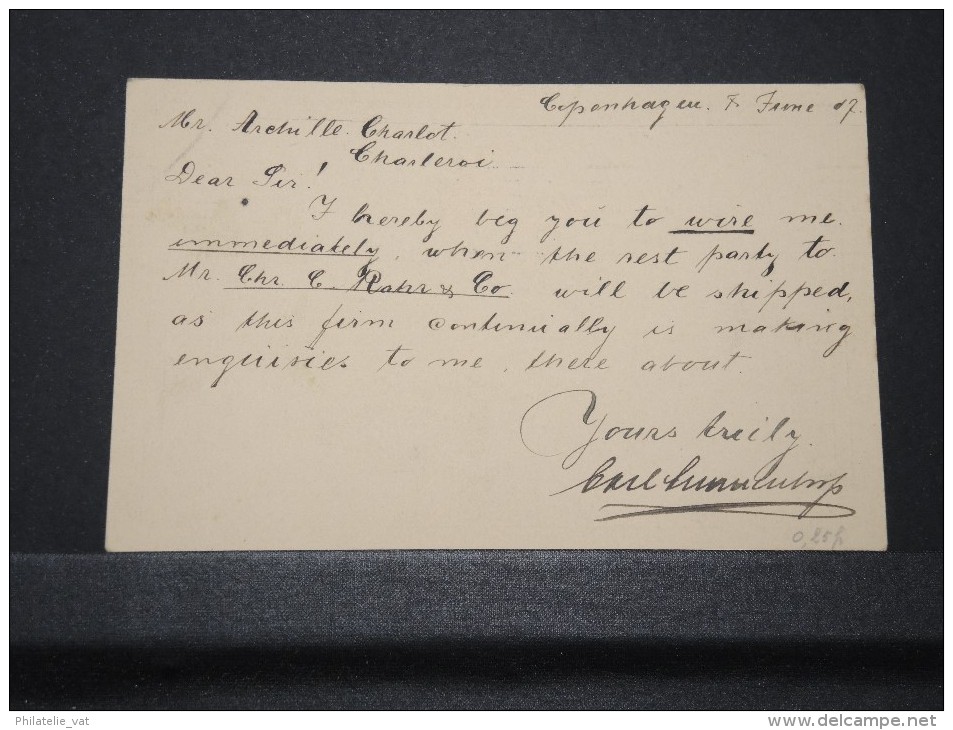 Copenhagen. June 07.
Mr. Archille Charlot.
Charleroi
Dear Sir!
I hereby beg you to wire me.
immediately, when the rest party to
Mr. Chr. C. Rahr & Co. will be shipped,
as this firm continually is making
enquiries to me, there about.
Yours truly.
Carl
0,25
Philatelie_vat
www.delcampe.net